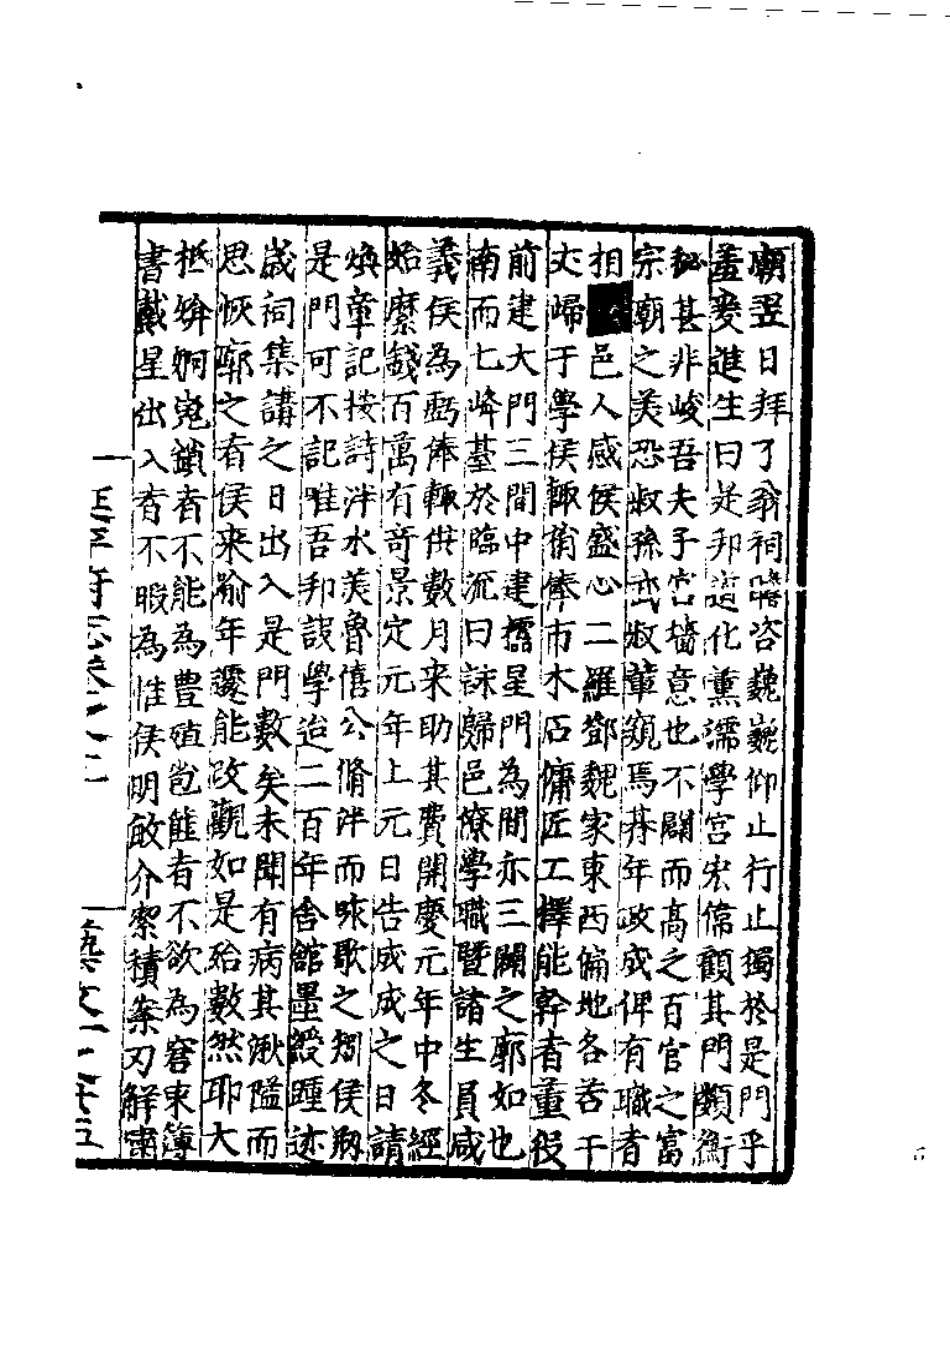 廟翌日拜了翁祠瞻咨巍巍仰止行止獨於是門乎
盖爱進生曰是邦道化熏濡學宮宏偉顧其門顙衡
秘甚非峻吾夫子宮墻意也不闢而高之百官之富
宗廟之美恐叔孫武叔輩窺焉朞年政成俾有職者
相 邑人感侯盛心二羅鄧魏家東西偏地各若干
丈歸于學侯輒捐俸市木石傭匠工擇能幹者董役
前建大門三間中建櫺星門為間亦三闢之廓如也
南而七峰基於臨流曰詠歸邑僚學職暨諸生員咸
義侯為虧俸輒供數月来助其費開慶元年中冬經
始縻錢百萬有竒景定元年上元日告成成之日請
煥章記按詩泮水美魯僖公脩泮而咏歌之矧侯剏
是門可不記惟吾邦設學迨二百年舍館墨綬踵迹
歲祠集講之日出入是門數矣未聞有病其湫隘而
思恢廓之者侯来逾年遽能改觀如是殆數然耶大
抵婣婀冗鎖者不能為豊殖㐫能者不欲為窘束簿
書戴星出入者不暇為惟侯明敏介潔積案刃解霜
延平府志卷之
藝文一之廿五